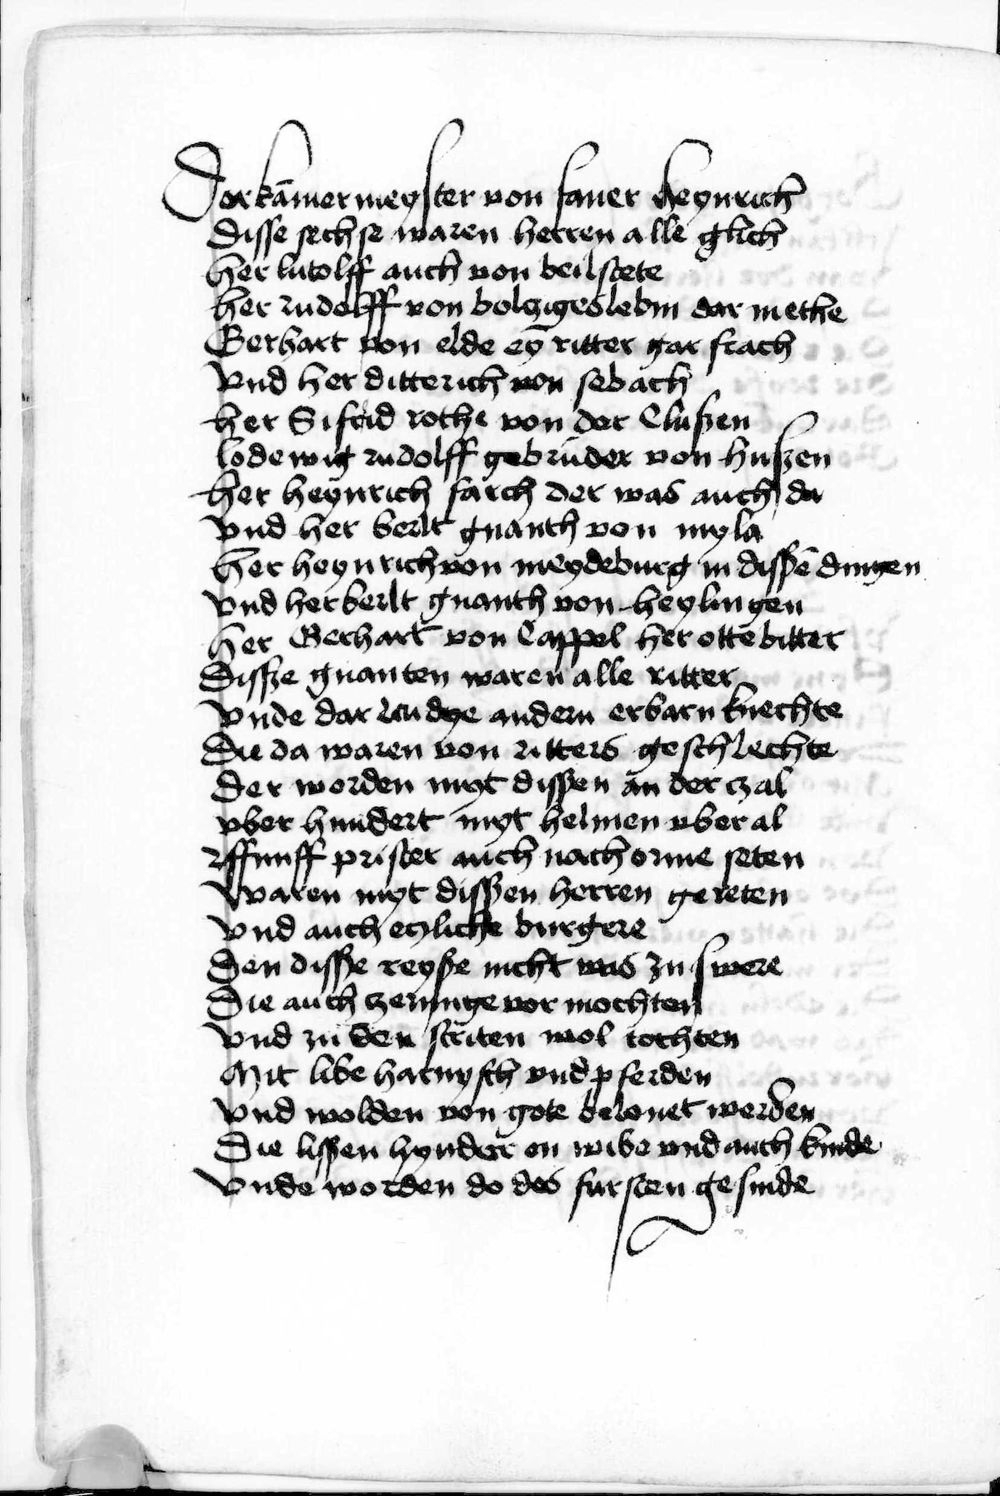 Der kam̄ermeyster von faner heynrich
Disse sechse waren herren alle glich
her lutolff auch von beilstete
her rudolff von bolczigeslebin dar methe
Gerhart von elde eȳ ritter gar starch
vnd her ditterich von sebach
her Sifrid rothe von der Clußen
lodewig rudolff gebruder von hußen
her heynrich farch der was auch da
vnd her berlt gnanth von myla
her heynrich von meydeburg in dissē dingen
vnd her berlt gnanth von heylingen
her Gerhart von Cappel her otte bitter
Disße gnanten waren alle ritter
Vnde dar zcu dye andern erbarn knechte
Die da waren von ritters geschlechte
Der worden myt dissen an der czal
vber hundert myt helmen vberal
uff funff prister auch nach orme seten
Waren myt dissen herren gereten
vnd auch eczliche burgere
Den disse reyße nicht was zu swere
Die auch zcerunge vor mochten
vnd zu den striten wol tochten
Mit libe harnysch vnd pferden
vnd wolden von gote belonet werden
Die lissen hynder on wibe vnd auch kinde
Vnde worden do des fursten gesinde